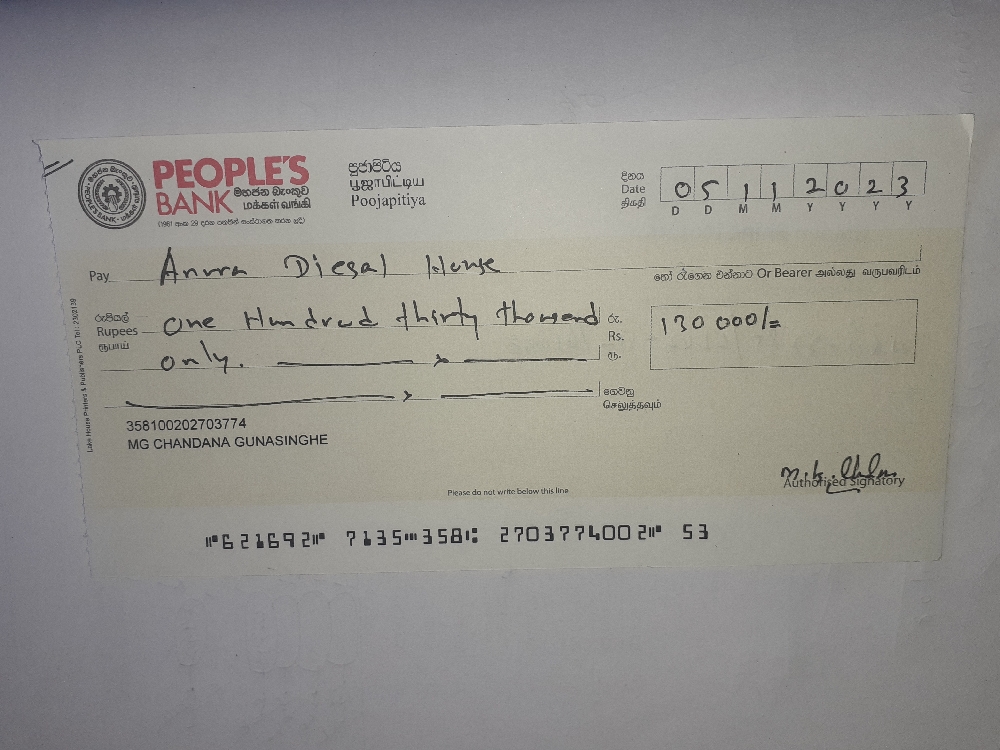 PEOPLE'S
BANK මහජන බැංකුව
மக்கள் வங்கி
(1961 අංක 29 දරන පනතින් සංස්ථාගත කරන ලදි)
PEOPLE'S BANK
පූජාපිටිය
பூஜாபிட்டிய
Poojapitiya
දිනය
Date
திகதி
0 5 1 1 2 0 2 3
D D M M Y Y Y Y
Pay Anura Diesal House
හෝ රැගෙන එන්නාට Or Bearer அல்லது வருபவரிடம்
රුපියල්
Rupees
ரூபாய்
One Hundred thirty thousend
only.
රු.
Rs.
ரூ.
130 000/=
ගෙවනු
செலுத்தவும்
358100202703774
MG CHANDANA GUNASINGHE
Authorised Signatory
Please do not write below this line
⑈621692⑈ 7135⑉358⑆ 2703774002⑈ 53
Lake House Printers & Publishers PLC Tel.: 2302139